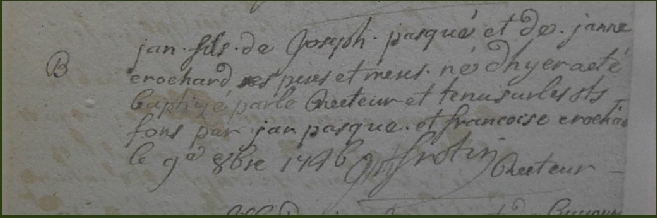 B jan fils de Joseph pasqué et de janne
crochard ses pere et mere né d'hyer a eté
baptizé par le Recteur et tenu sur les sts
fons par jan pasque et francoise crochar
le 9e 8bre 1746 Recteur